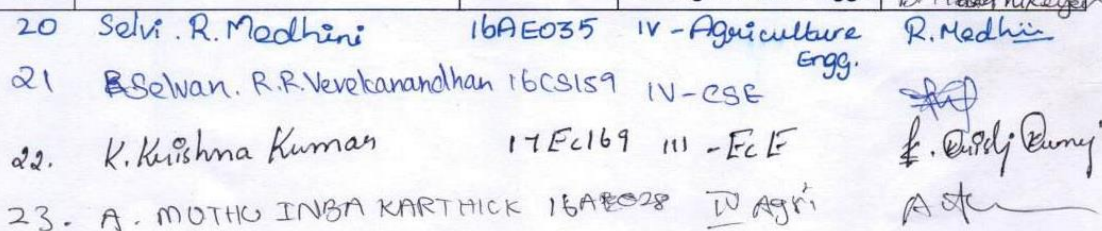 20 Selvi. R. Medhini 16AE035 IV - Agriculture Engg. R. Medhini
21 Selvan. R.R. Vevekanandhan 16CS159 IV-CSE
22. K. Krishna Kumar 17Ec169 III - EcE
23. A. MOTHU INBA KARTHICK 16AE028 IV Agri